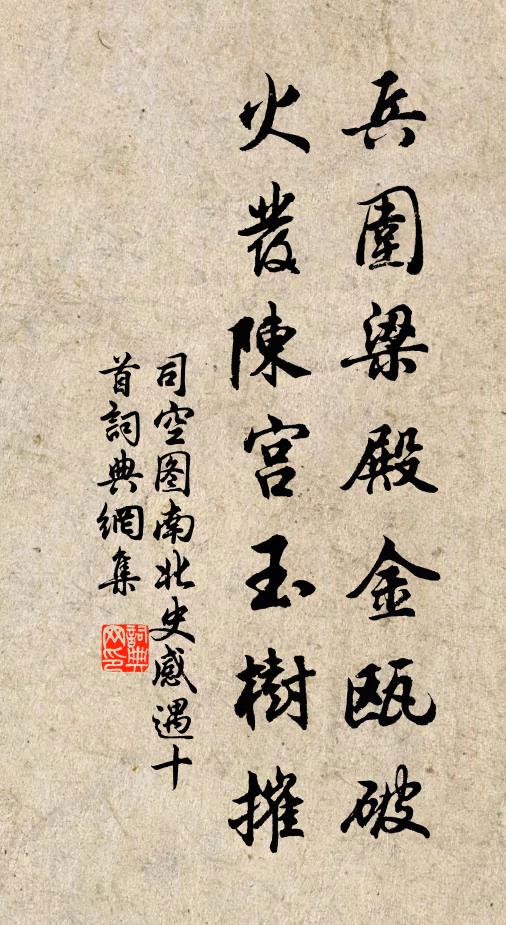 兵圍梁殿金瓯破
火發陳宮玉樹摧
司空图南北史感遇十
首詞典網集
詞典网印